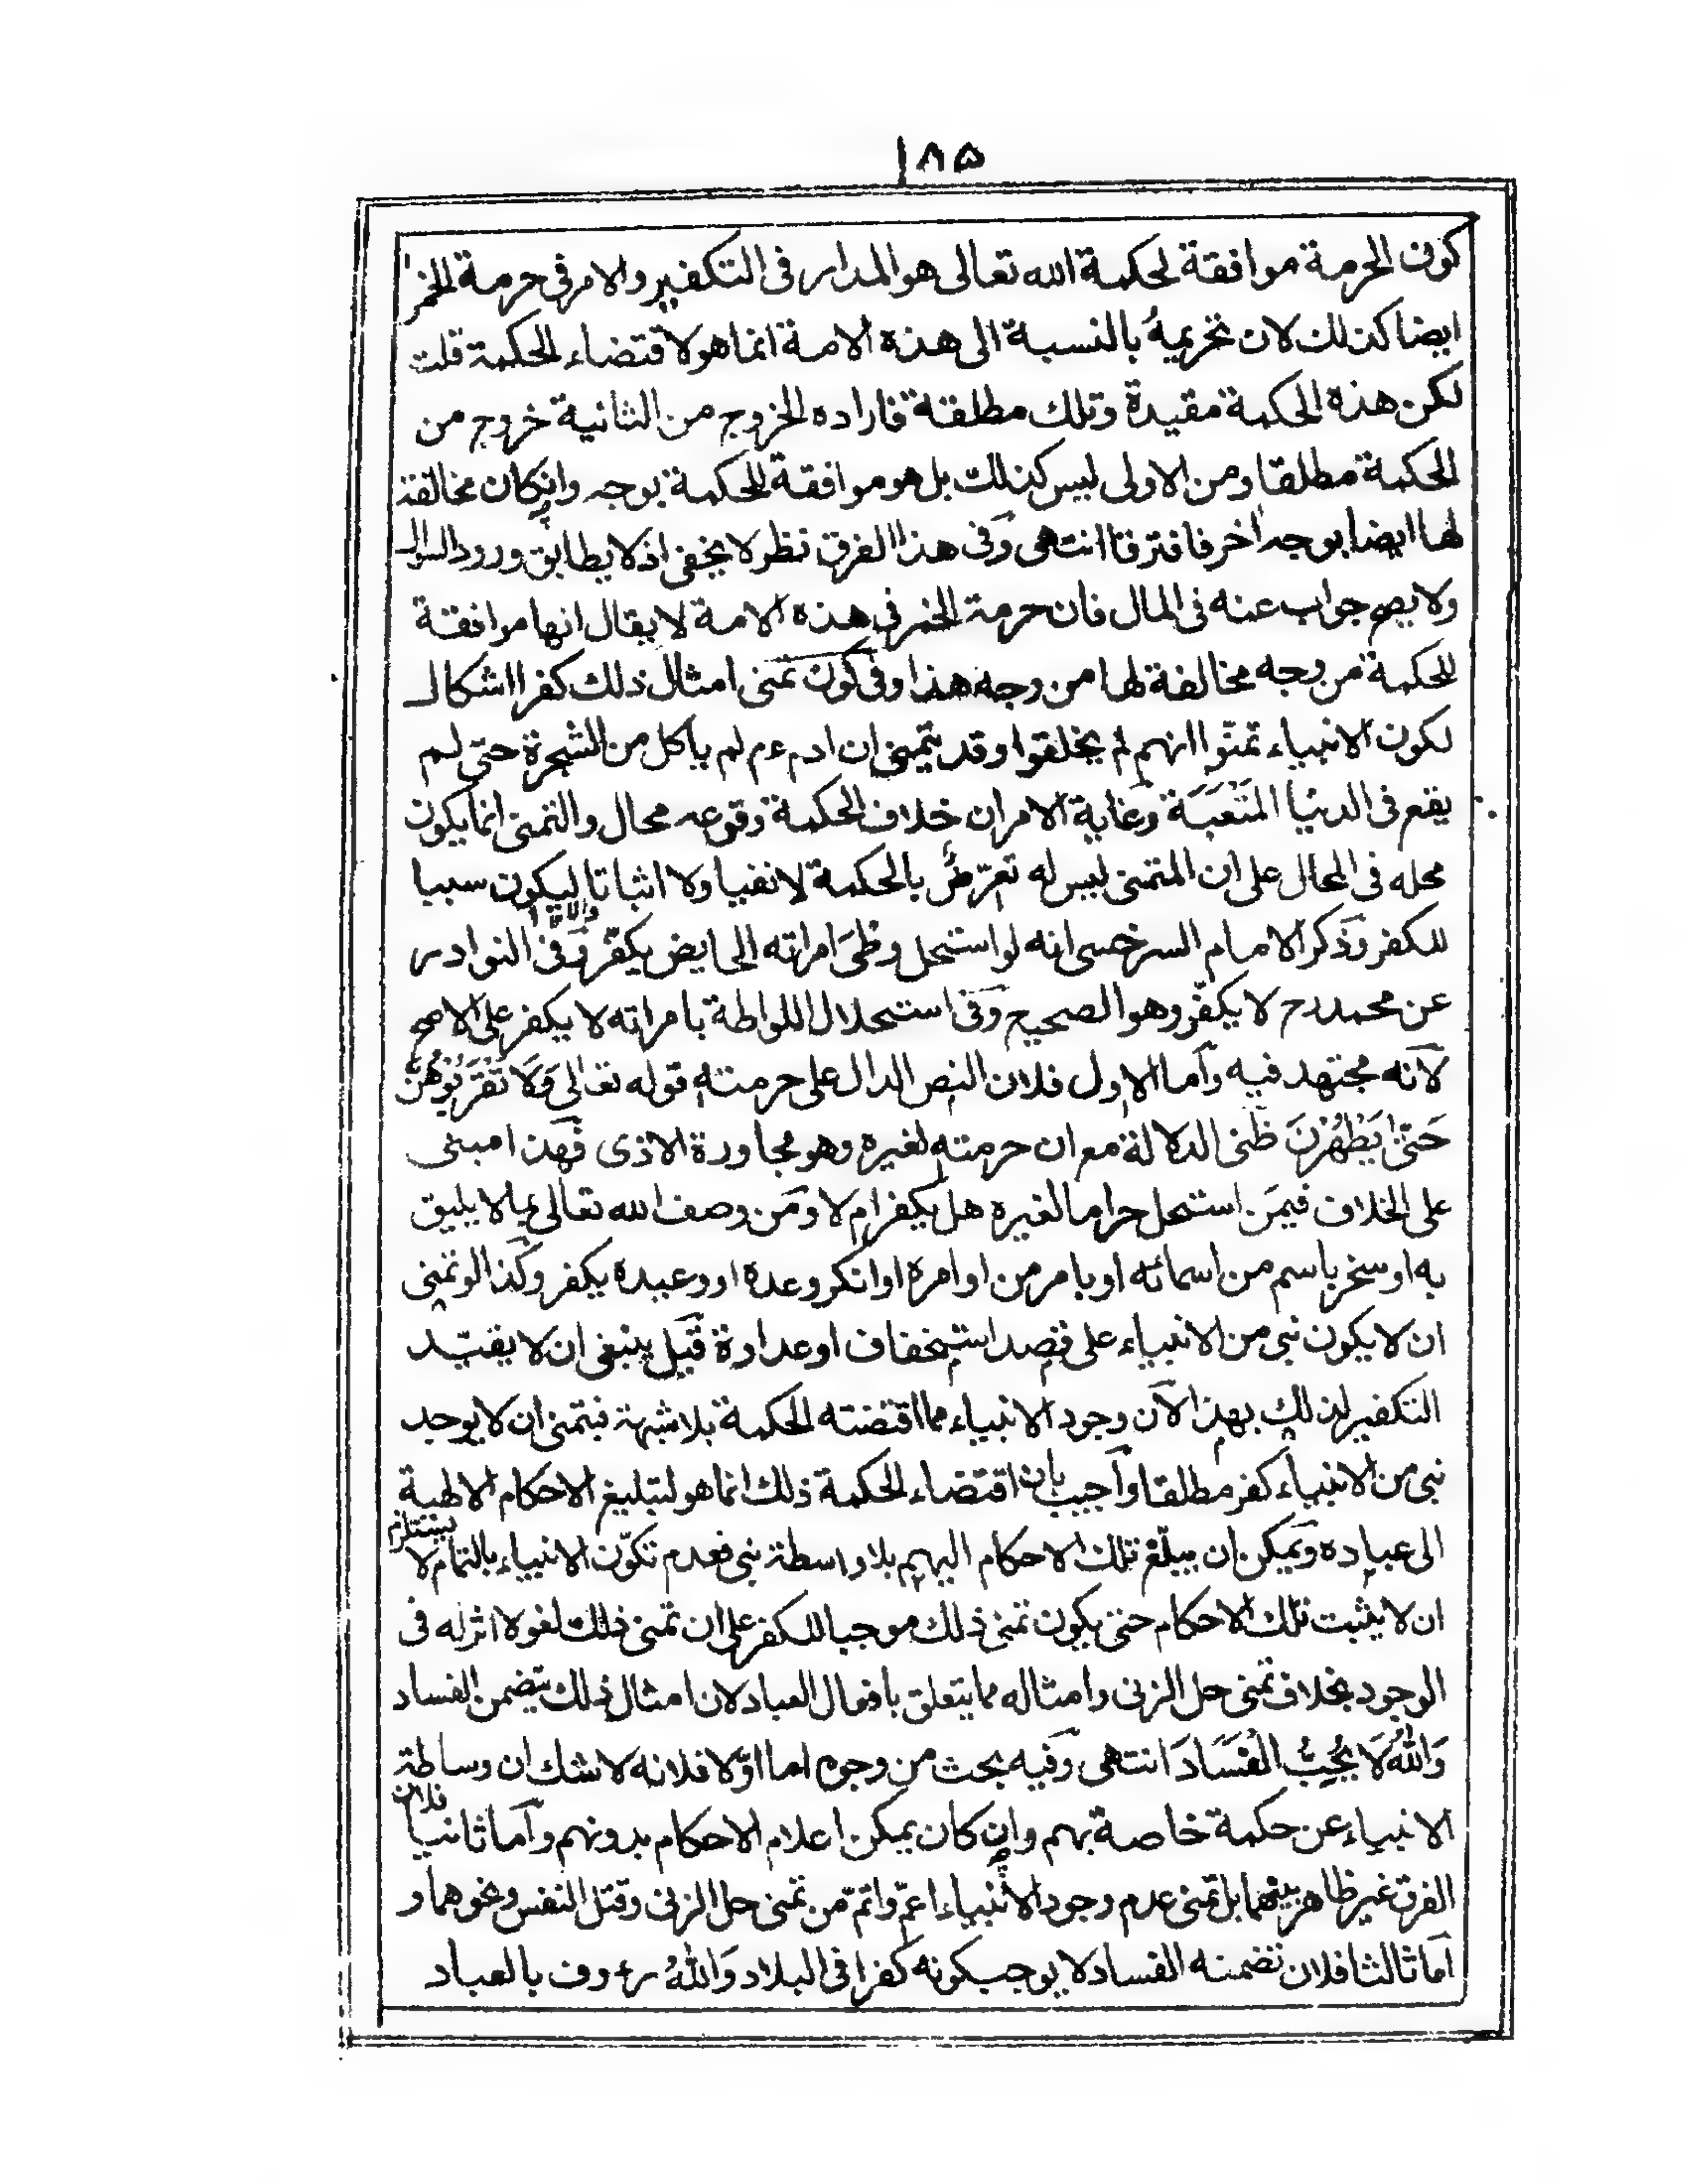 ١٨٥
كون الحرمة موافقة لحكمة الله تعالى هو المدار فى التكفير والامر فى حرمة الخمر
ايضا كذلك لان تحريمهُ بالنسبة الى هذه الامة انما هو لاقتضاء الحكمة قلت
لكن هذه الحكمة مقيدة وتلك مطلقة فاراده الخروج من الثانية خروج من
الحكمة مطلقا ومن الاولى ليس كذلك بل هو موافقة للحكمة بوجه وانكان مخالفة
لها ايضا بوجه اخر فافترقا انتهى وفى هذا الفرق نظر لا يخفى اذ لا يطابق ورود السوال
ولا يصح جواب عنه فى المال فان حرمة الخمر فى هذه الامة لا يقال انها موافقة
للحكمة من وجه مخالفة لها من وجه هذا وفى كون تمنى امثال ذلك كفرا اشكال
لكون الانبياء تمنّوا انهم لم يخلقوا وقد يتمنى ان ادم ءم لم ياكل من الشجرة حتى لم
يقع فى الدنيا المَتعَبَة وغاية الامر ان خلاف الحكمة وقوعه محال والتمنى انما يكون
محله فى المحال على ان المتمنى ليس له تعرّضٌ بالحكمة لا نفيا ولا اثباتا ليكون سببا
للكفر وذكر الامام السرخسى انه لو استحل وطىَ امراته الحايض يكفّر وفى النوادر
عن محمد رح لا يكفّر وهو الصحيح وفى استحلال اللواطة بامراته لا يكفر على الاصح
لانه مجتهد فيه واما الاول فلان النص الدال على حرمته قوله تعالى وَلَا تَقْرَبُوْهُنَّ
حَتّٰى يَطْهُرْنَ ظنى الدلالة مع ان حرمته لغيره وهو مجاورة الاذى فهذا مبنى
على الخلاف فيمن استحل حراما لغيره هل يكفر ام لا ومن وصف الله تعالى بما لا يليق
به او سخر باسم من اسمائه او بامر من اوامره او انكر وعده او وعيده يكفر وكذا لو تمنى
ان لا يكون نبى من الانبياء على قصد استخفاف او عداوة قيل ينبغى ان لا يقيّد
التكفير لذلك بهذا لان وجود الانبياء مما اقتضته الحكمة بلا شبهة فتمنى ان لا يوجد
نبى من الانبياء كفر مطلقا واجيب بان اقتضاء الحكمة ذلك انما هو لتبليغ الاحكام الالهية
الى عباده ويمكن ان يبلّغ تلك الاحكام اليهم بلا واسطة نبى فعدم تكوّن الانبياء بالتمام لا يستلزم
ان لا يثبت تلك الاحكام حتى يكون تمنى ذلك موجبا للكفر على ان تمنى ذلك لغو لا اثر له فى
الوجود بخلاف تمنى حل الزنى وامثاله مما يتعلق بافعال العباد لان امثال ذلك يتضمن الفساد
وَاللّٰهُ لَا يُحِبُّ الْفَسَادَ انتهى وفيه بحث من وجوه اما اوّلا فلانه لا شك ان وساطة
الانبياء عن حكمة خاصة بهم وان كان يمكن اعلام الاحكام بدونهم واما ثانيا فلان
الفرق غير ظاهر بينهما بل تمنى عدم وجود الانبياء اعمّ واتمّ من تمنى حل الزنى وقتل النفس ونحوهما و
اما ثالثا فلان تضمنه الفساد لا يوجب كونه كفرا فى البلاد وَاللّٰهُ رءوف بالعباد